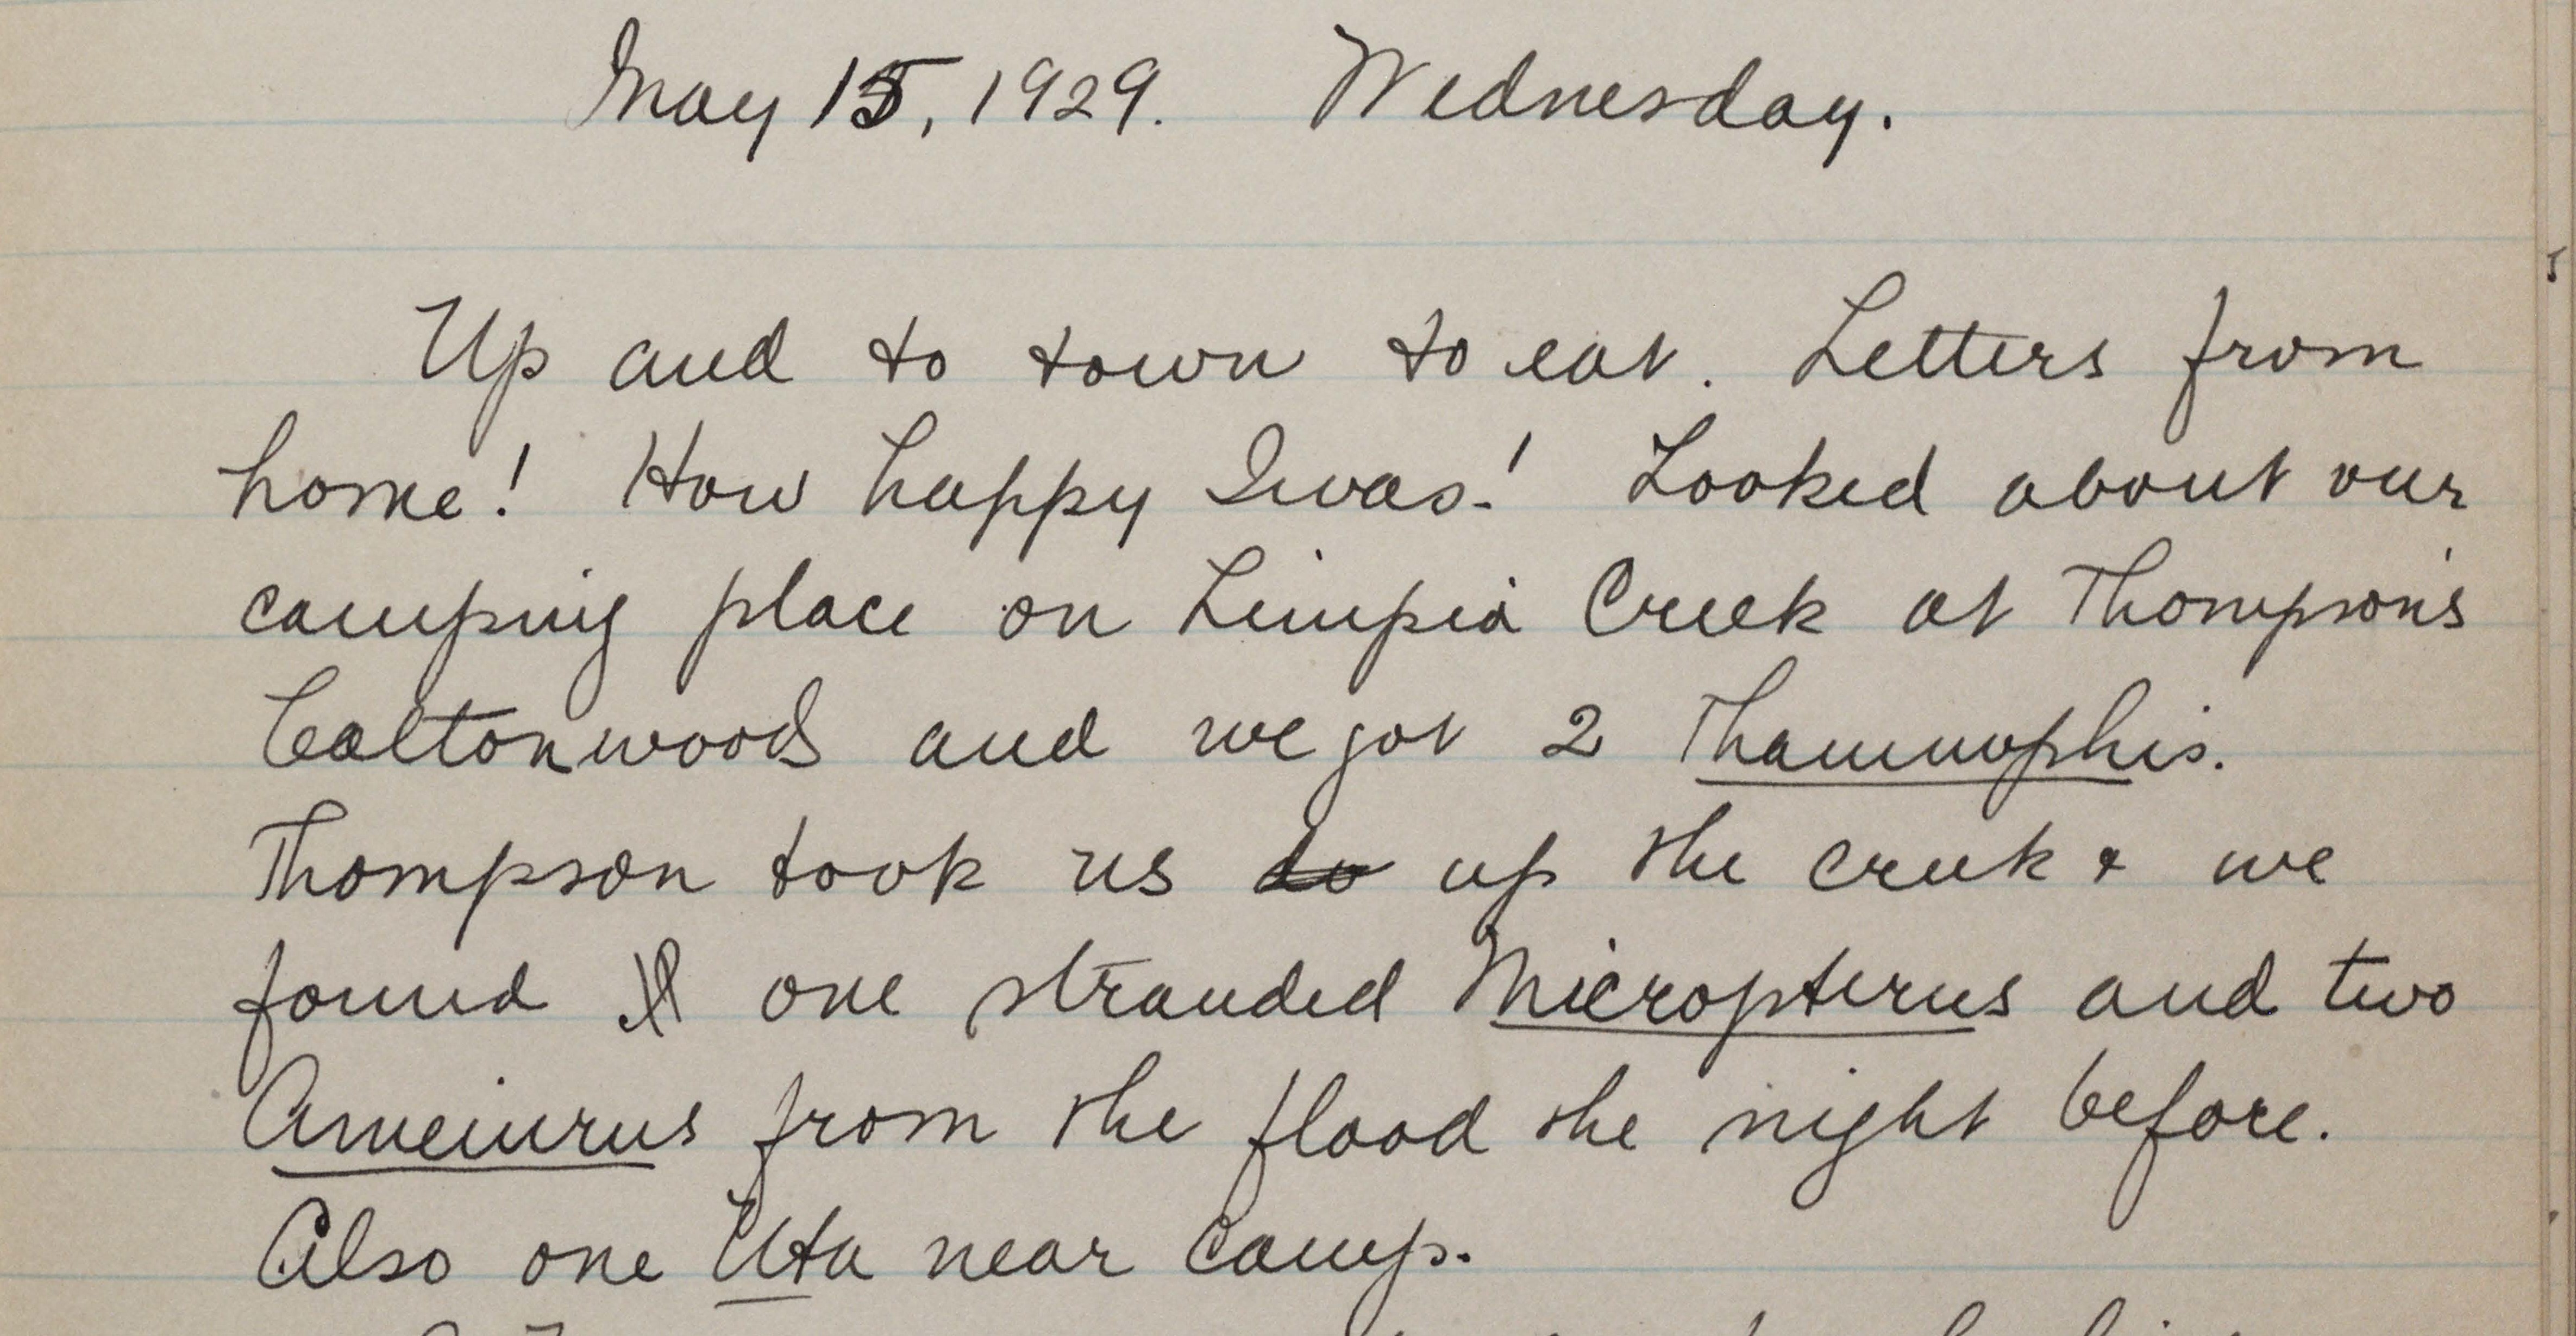 May 15, 1929. Wednesday.
Up and to town to eat. Letters from
home! How happy I was! Looked about our
camping place on Limpia Creek at Thompson's
Cottonwoods and we got 2 Thamnophis.
Thompson took us to up the creek & we
found one stranded Micropterus and two
Ameiurus from the flood the night before.
Also one Uta near camp.